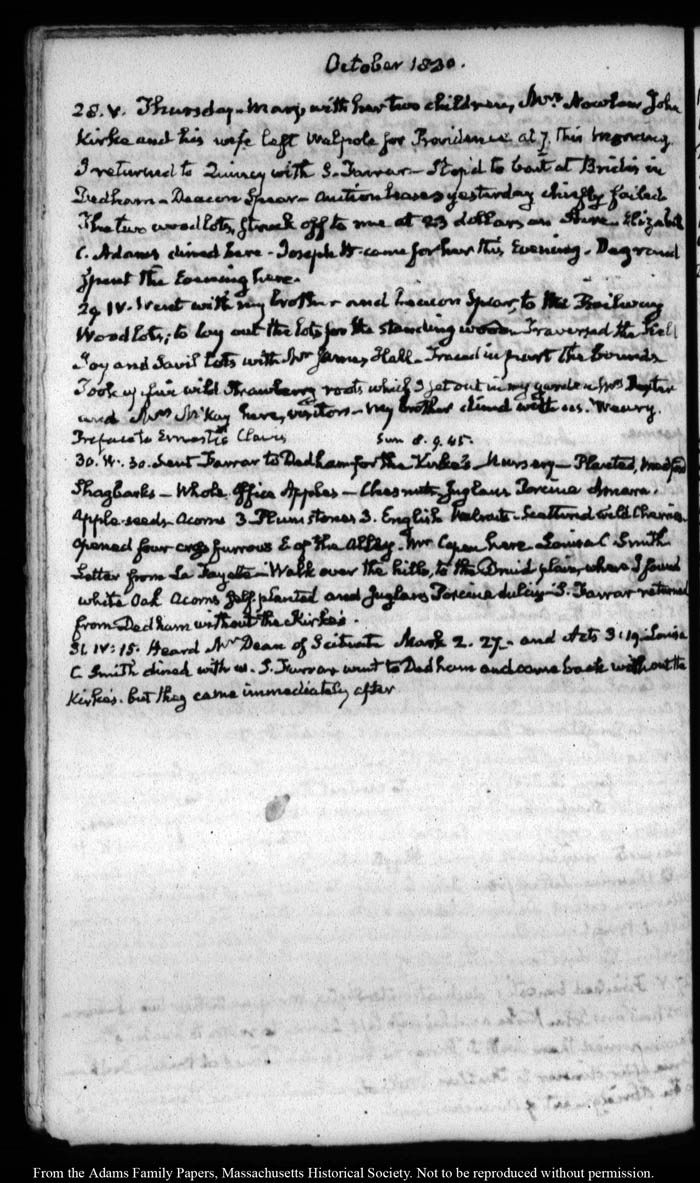 October 1830.
28. V. Thursday. Mary, with her two children, Mrs Nowlan John
Kirke and his wife left Walpole for Providence at 7. this morning
I returned to Quincy with S. Farrar – Stop'd to bait at in
Dedham – Deacon Spear – auction leases yesterday chiefly failed
The two wood lots, struck off to me at 23 dollars an Acre. Elizabeth
C. Adams dined here – Joseph H. came for her this Evening. Degrand
spent the Evening here.
29. IV. Went with my brother and Deacon Spear, to the Railway
Wood lots; to lay out the lots for the standing wood. Traversed the Field
Joy and Savil lots with Mr James Hall. Traced in part the bounds
Took up five wild Strawberry roots which I set out in my garden Mrs
and Mrs McKay here, visitors – My brother dined with us. Weary.
Preface to Ernesti's Clavis Sun 8. 9. 45.
30. IV. 30. Sent Farrar to Dedham for the Kirke's – Nursery – Planted,
Shagbarks – Whole Office Apples – Chesnuts Juglans Porcina Amara.
Apple-seeds Acorns 3 Plumstones 3. English Walnuts. Scattered wild Cherries
opened four cross furrows E of the Alley. Mr Capen here Louisa C Smith
Letter from La Fayette – Walk over the hills, to the Druid plain, where I found
white Oak Acorns self planted and Juglans Porcina dulcis – S. Farrar returned
from Dedham without the Kirke's.
31. IV: 15. Heard Mr Dean of Scituate Mark 2. 27. and Acts 3. 19. Louisa
C. Smith dined with us. S. Farrar went to Dedham and came back without the
Kirke's. but they came immediately after
From the Adams Family Papers, Massachusetts Historical Society. Not to be reproduced without permission.